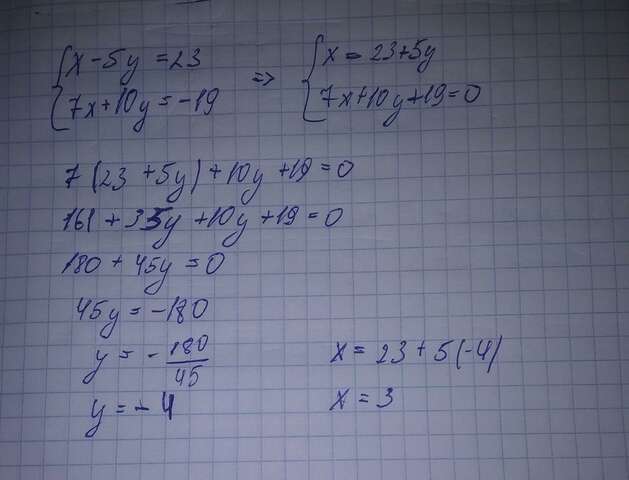 {x - 5y = 23 => {x = 23+5y
{7x+10y = -19 {7x+10y+19=0
7(23 +5y) + 10y +19 = 0
161 + 35y + 10y + 19 = 0
180 + 45y = 0
45y = -180
y = - 180/45 x = 23 + 5(-4)
y = - 4 x = 3